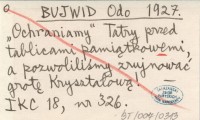 BUJWID Odo 1927.
"Ochraniamy" Tatry przed
tablicami pamiątkowemi,
a pozwoliliśmy zrujnować
grotę Kryształową!
IKC 18, nr 326.
ST/004/0343